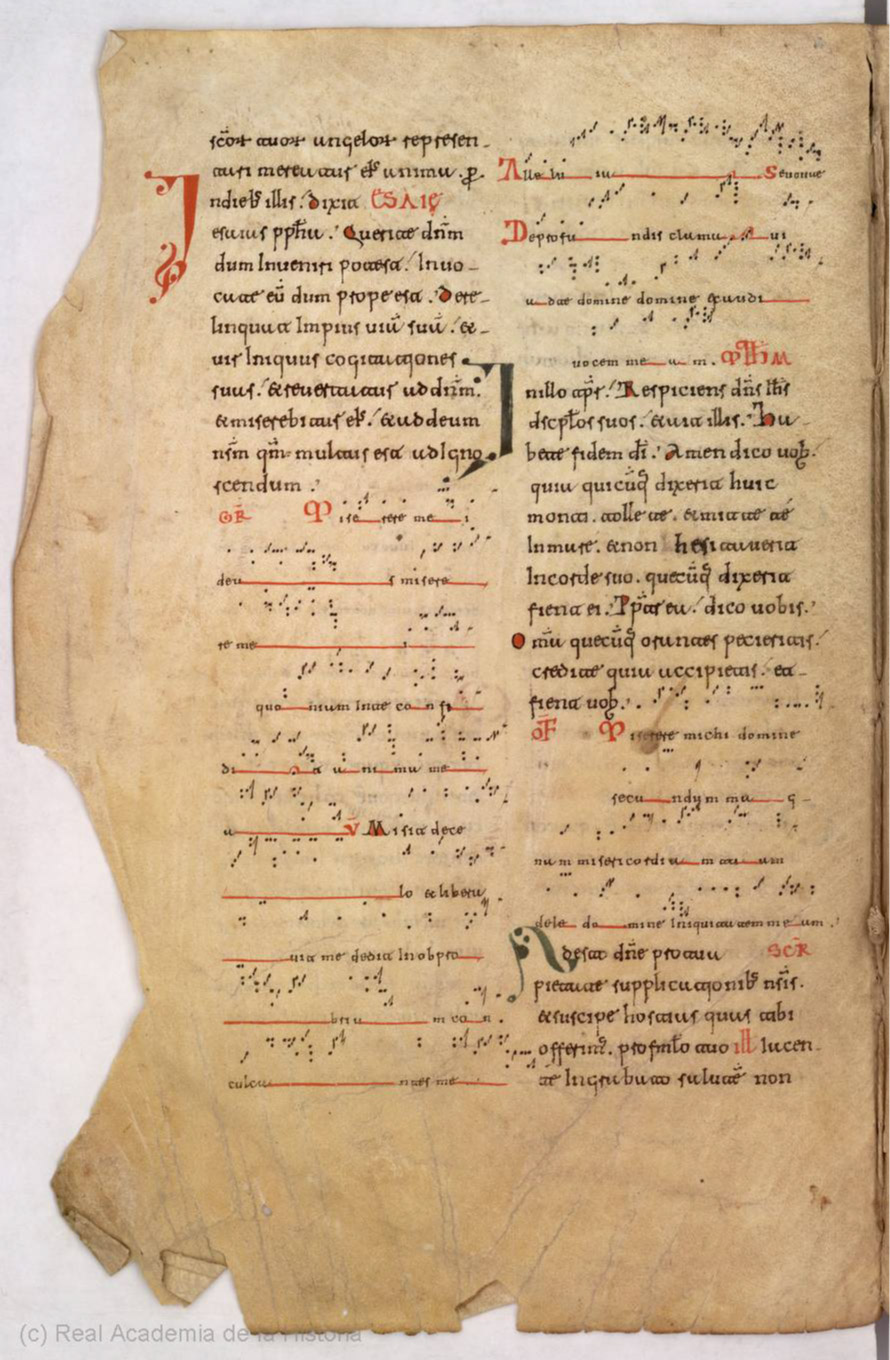 scõr tuor angelor represen-
ndieb illis. dixit ESAIE
esaias pphã. Querite dnm
dum Inueniri potest. Inuo-
cate eũ dum prope est. Dere-
linquat Impius uiã suã. et-
uir Iniquus cogitationes
suas. et reuertatur ad dnm.
et miserebitur ei. et ad deum
nrm qm multus est ad Igno
scendum.
GR Miserere mei
deus misere
re me i
quoniam Inte confi
dit anima me
a V Misit de ce
lo et libera
uit me dedit In obpro
briu m con
culcantes me
Alleluia Senoune
De profundis clamaui
ad te domine domine exaudi
uocem me a m.
nillo tps. Respiciens dns ihs
dscplos suos. et ait illis. Ha
bete fidem di. Amen dico uob.
quia quicũq dixerit huic
monti. tolle te. et mitte te
In mare. et non hesitauerit
In corde suo. quecũq dixerit
fiet ei. Ppterea dico uobis.
Omia quecũq orantes petieritis.
credite quia accipietis. et
fient uob.
OF Miserere michi domine
secundum ma g-
nam misericordia m tu am
dele domine Iniquitatem me am.
Adesto dne pro tuu SCR
pietate supplicationib nris.
et suscipe hostias quas tibi
offerim. pro fmlo tuo ill lucen-
te Ingrabato salutẽ non
(c) Real Academia de la Historia